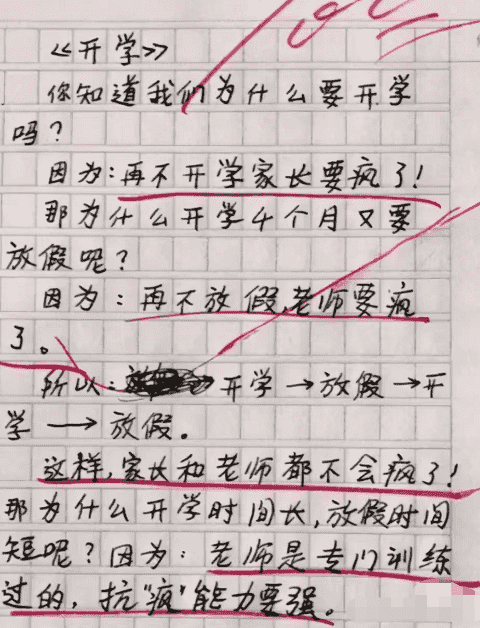 《开学》
你知道我们为什么要开学
吗？
因为：再不开学家长要疯了！
那为什么开学4个月又要
放假呢？
因为：再不放假，老师要疯
了。
所以：开学→放假→开
学→放假。
这样，家长和老师都不会疯了！
那为什么开学时间长，放假时间
短呢？因为：老师是专门训练
过的，抗“疯”能力要强。